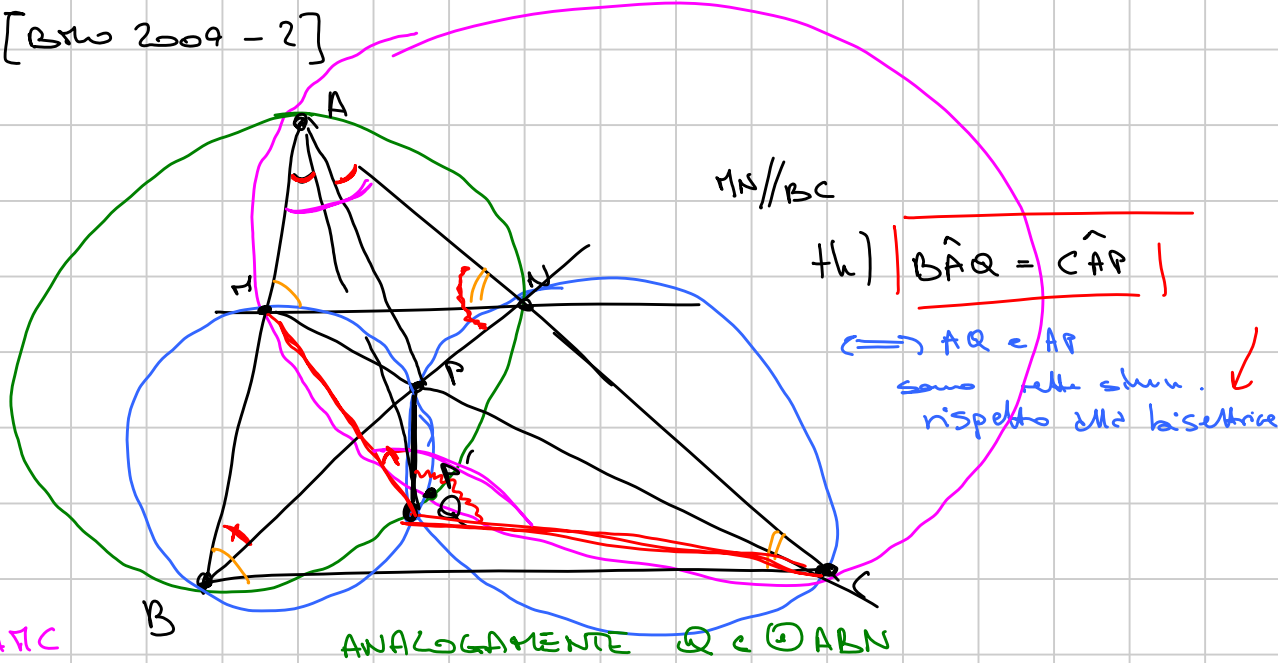 [BMO 2009 - 2]
A
MN//BC
th) BÂQ = CÂP
M
N
⟺ AQ e AP
sono rette simm.
rispetto alla bisettrice
P
A'
Q
B
C
AMC
ANALOGAMENTE Q ∈ ⊙ABN